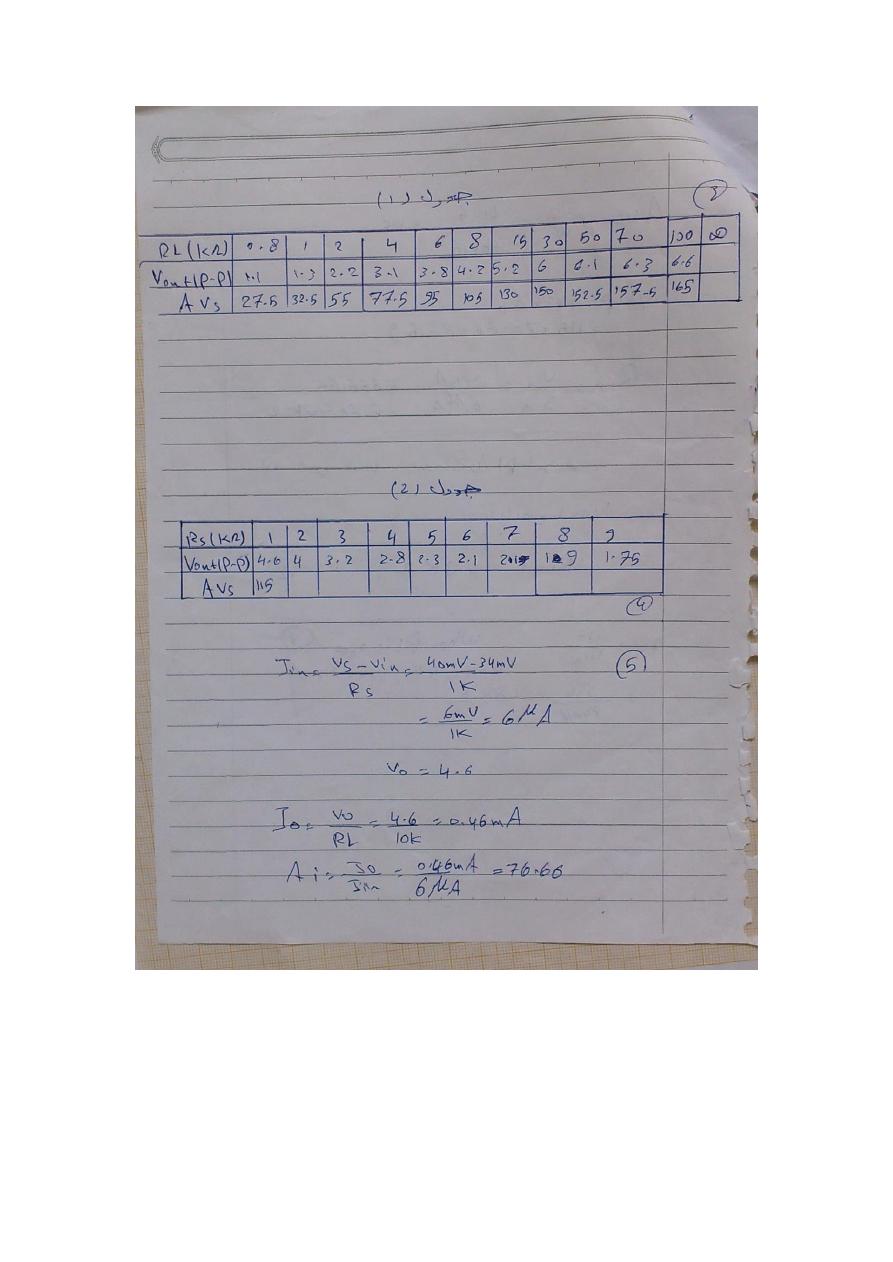 جدول (1)
3
RL(KΩ) 0.8 1 2 4 6 8 15 30 50 70 100 ∞
Vout(P-P) 1.1 1.3 2.2 3.1 3.8 4.2 5.2 6 6.1 6.3 6.6
A Vs 27.5 32.5 55 77.5 95 105 130 150 152.5 157.5 165
جدول (2)
Rs(KΩ) 1 2 3 4 5 6 7 8 9
Vout(P-P) 4.6 4 3.2 2.8 2.3 2.1 1.9 1.75
A Vs 115
4
5
Iin = Vs - Vin / Rs = 40mV-34mV / 1K
= 6mV / 1K = 6 μA
Vo = 4.6
Io = Vo / RL = 4.6 / 10K = 0.46mA
Ai = Io / Iin = 0.46mA / 6 μA = 76.66